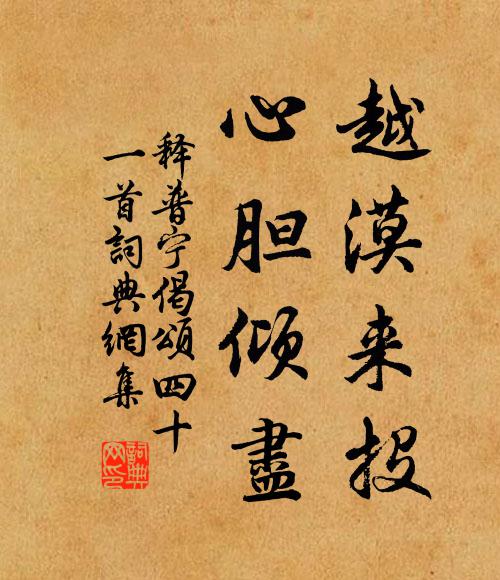 越漠来投
心胆倾盡
释普宁偈頌四十
一首詞典網集
詞典
网印